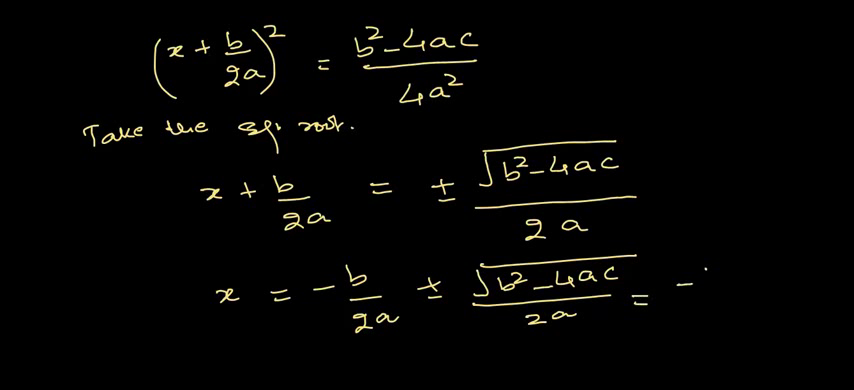 (x + b/2a)² = b² - 4ac / 4a²
Take the sq. root.
x + b/2a = ± √(b² - 4ac) / 2a
x = - b/2a ± √(b² - 4ac) / 2a = -